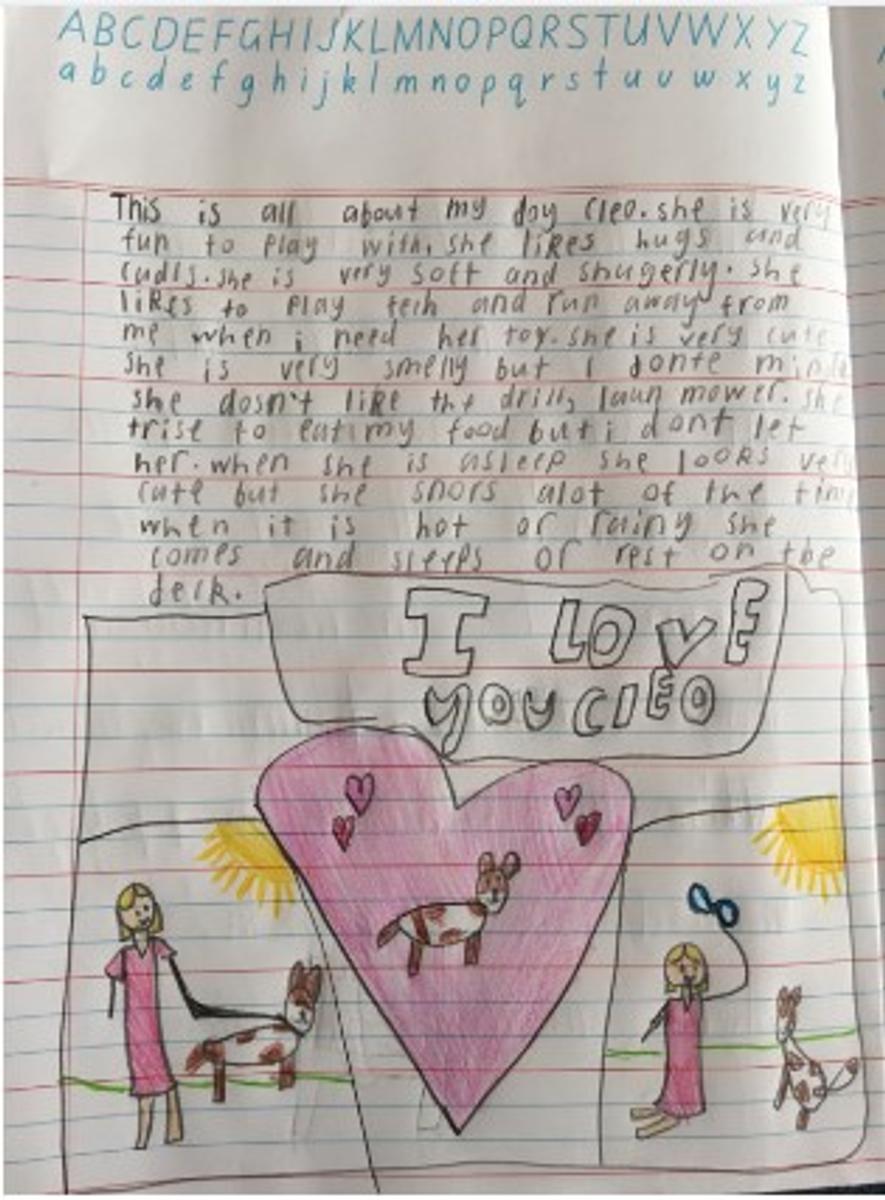 ABCDEFGHIJKLMNOPQRSTUVWXYZ
abcdefghijklmnopqrstuvwxyz
This is all about my doy Cleo. she is very
fun to play with. she likes hugs and
cudls. she is very soft and snugerly. she
likes to play tech and run away from
me when i need her toy. she is very cute
she is very smelly but I donte mind
she dosn't like the drill, laun mower. she
trise to eat my food but i dont let
her. when she is asleep she looks very
cute but she snors alot of the time
when it is hot or rainy she
comes and sleeps or rest on the
deck.
I LOVE
you CleO